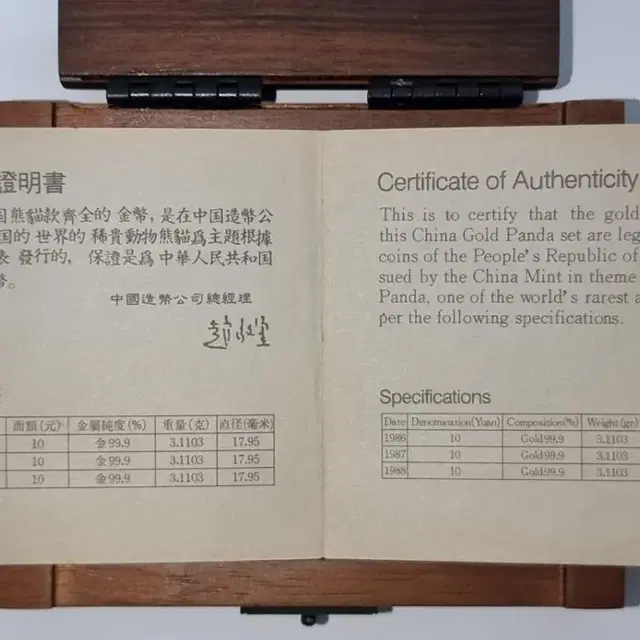 證明書
国熊貓款齊全的 金幣, 是在中国造幣公
国的 世界的 稀貴動物熊貓爲主題根據
表 發行的, 保證是爲 中華人民共和国
幣。
中國造幣公司總經理
面額(元) 金屬純度(%) 重量(克) 直径(毫米)
10 金99.9 3.1103 17.95
10 金99.9 3.1103 17.95
10 金99.9 3.1103 17.95
Certificate of Authenticity
This is to certify that the gold
this China Gold Panda set are leg
coins of the People's Republic of
sued by the China Mint in theme
Panda, one of the world's rarest a
per the following specifications.
Specifications
Date Denomination(Yuan) Composition(%) Weight(gr)
1986 10 Gold99.9 3.1103
1987 10 Gold99.9 3.1103
1988 10 Gold99.9 3.1103